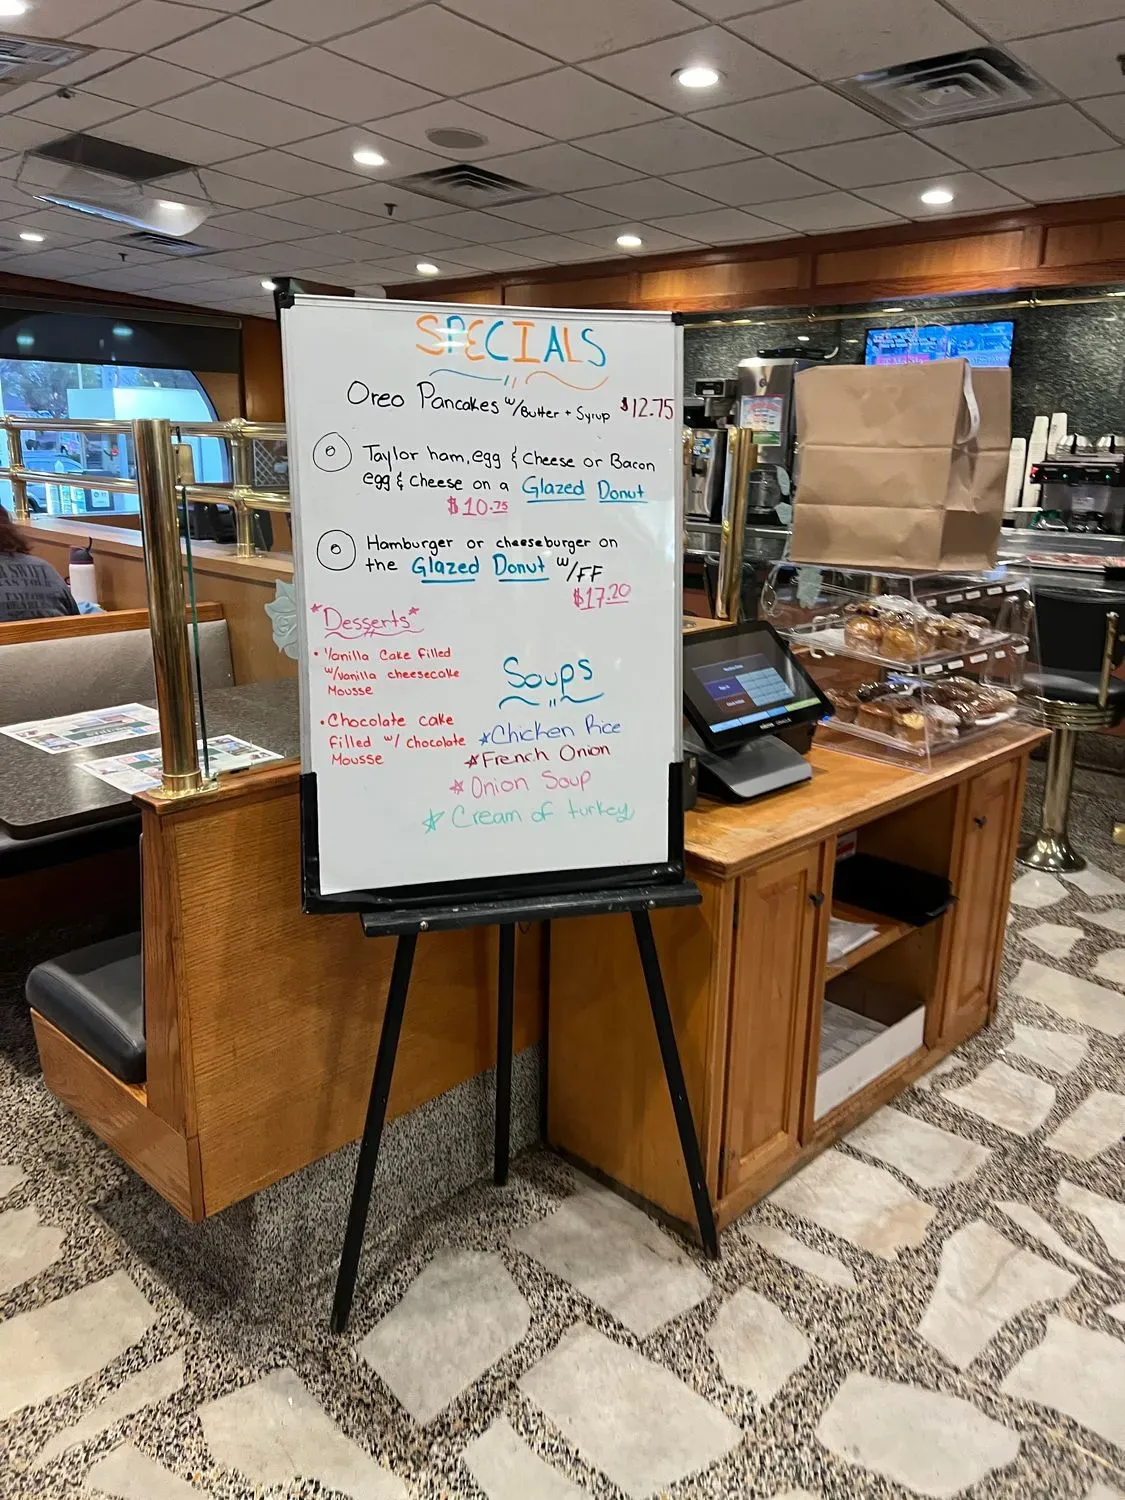 SPECIALS
Oreo Pancakes w/Butter + Syrup $12.75
Taylor ham, egg & cheese or Bacon
egg & cheese on a Glazed Donut
$10.75
Hamburger or cheeseburger on
the Glazed Donut w/FF
$17.20
*Desserts*
• Vanilla Cake filled
w/vanilla cheesecake
Mousse
• Chocolate cake
filled w/ chocolate
Mousse
Soups
☆Chicken Rice
☆French Onion
☆Onion Soup
☆Cream of turkey